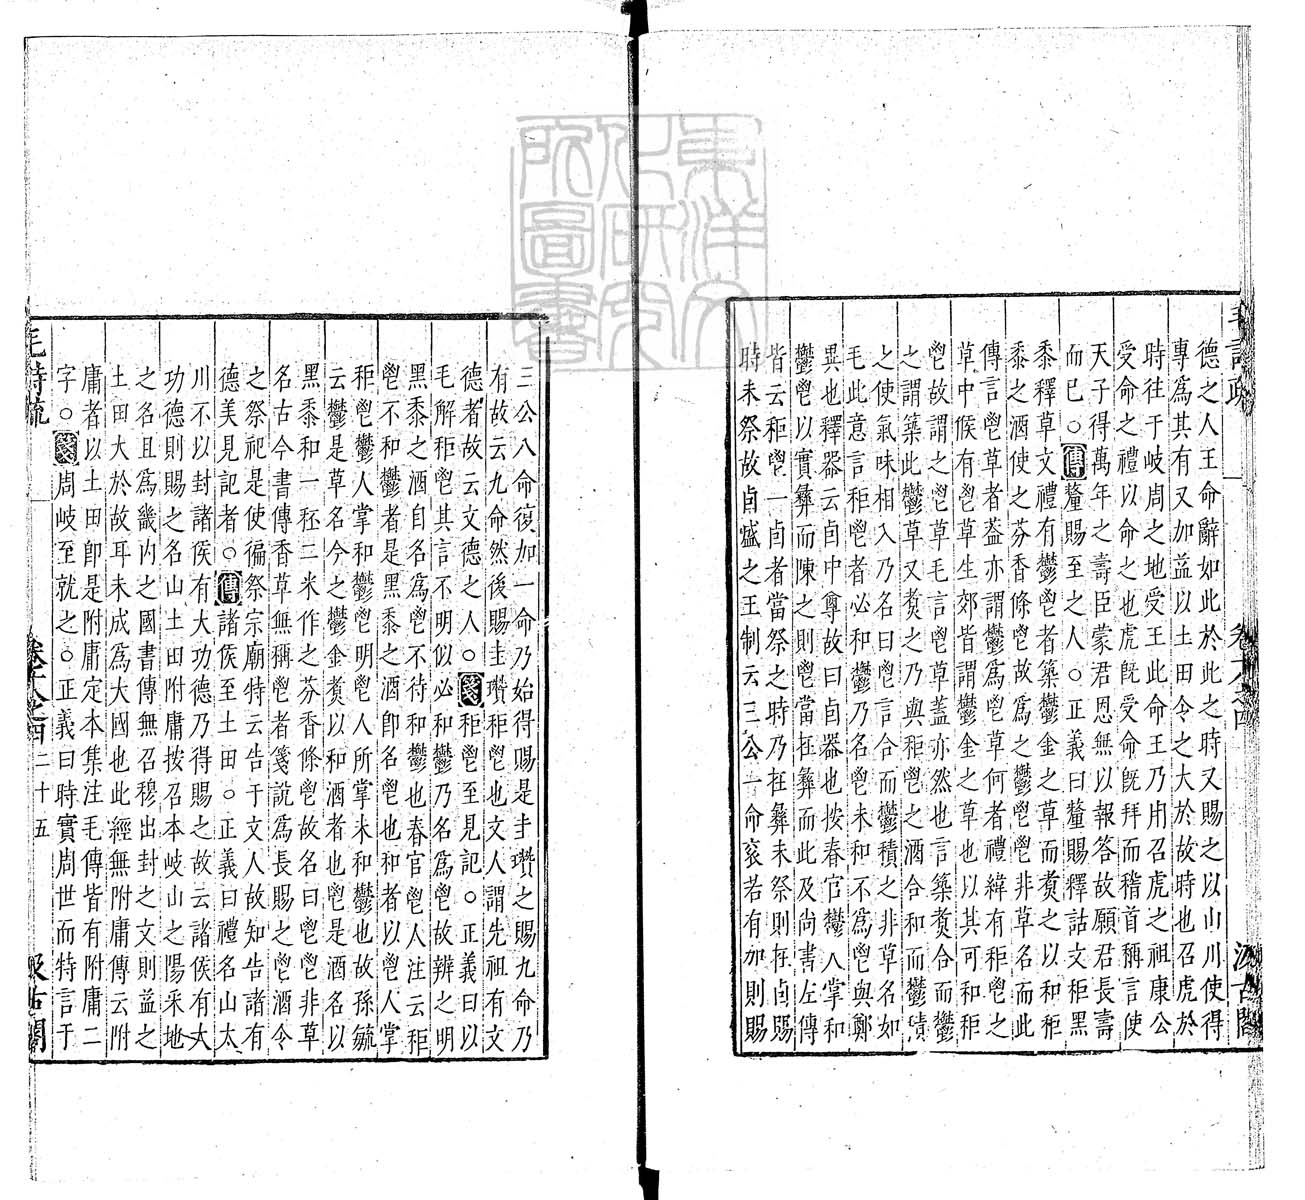 德之人王命辭如此於此之時又賜之以山川使得
專爲其有又加益以土田令之大於故時也召虎於
時往于岐周之地受王此命王乃用召虎之祖康公
受命之禮以命之也虎旣受命旣拜而稽首稱言使
天子得萬年之壽臣蒙君恩無以報答故願君長壽
而已○傳釐賜至之人○正義曰釐賜釋詁文秬黑
黍釋草文禮有鬱鬯者築鬱金之草而煑之以和秬
黍之酒使之芬香條鬯故爲之鬱鬯鬯非草名而此
傳言鬯草者葢亦謂鬱爲鬯草何者禮緯有秬鬯之
草中候有鬯草生郊皆謂鬱金之草也以其可和秬
鬯故謂之鬯草毛言鬯草蓋亦然也言築煑合而鬱
之謂築此鬱草又煑之乃與秬鬯之酒合和而鬱積
之使氣味相入乃名曰鬯言合而鬱積之非草名如
毛此意言秬鬯者必和鬱乃名鬯未和不爲鬯與鄭
異也釋器云卣中尊故曰卣器也按春官鬱人掌和
鬱鬯以實彝而陳之則鬯當在彝而此及尚書左傳
皆云秬鬯一卣者當祭之時乃在彝未祭則在卣賜
時未祭故卣盛之王制云三公一命衮若有加則賜
毛詩疏 卷十八之四 汲古閣
三公八命復加一命乃始得賜是圭瓚之賜九命乃
有故云九命然後賜圭瓚秬鬯也文人謂先祖有文
德者故云文德之人○箋秬鬯至見記○正義曰以
毛解秬鬯其言不明似必和鬱乃名爲鬯故辨之明
黑黍之酒自名爲鬯不待和鬱也春官鬯人注云秬
鬯不和鬱者是黑黍之酒卽名鬯也和者以鬯人掌
秬鬯鬱人掌和鬱鬯明鬯人所掌未和鬱也故孫毓
云鬱是草名今之鬱金煑以和酒者也鬯是酒名以
黑黍和一秠二米作之芬香條鬯故名曰鬯鬯非草
名古今書傳香草無稱鬯者箋說爲長賜之鬯酒令
之祭祀是使徧祭宗廟特云告于文人故知告諸有
德美見記者○傳諸侯至土田○正義曰禮名山大
川不以封諸侯有大功德乃得賜之故云諸侯有大
功德則賜之名山土田附庸按召本岐山之陽采地
之名且爲畿內之國書傳無召穆出封之文則益之
土田大於故耳未成爲大國也此經無附庸傳云附
庸者以土田卽是附庸定本集注毛傳皆有附庸二
字○箋周岐至就之○正義曰時實周世而特言于
毛詩疏 卷十八之四 二十五 汲古閣